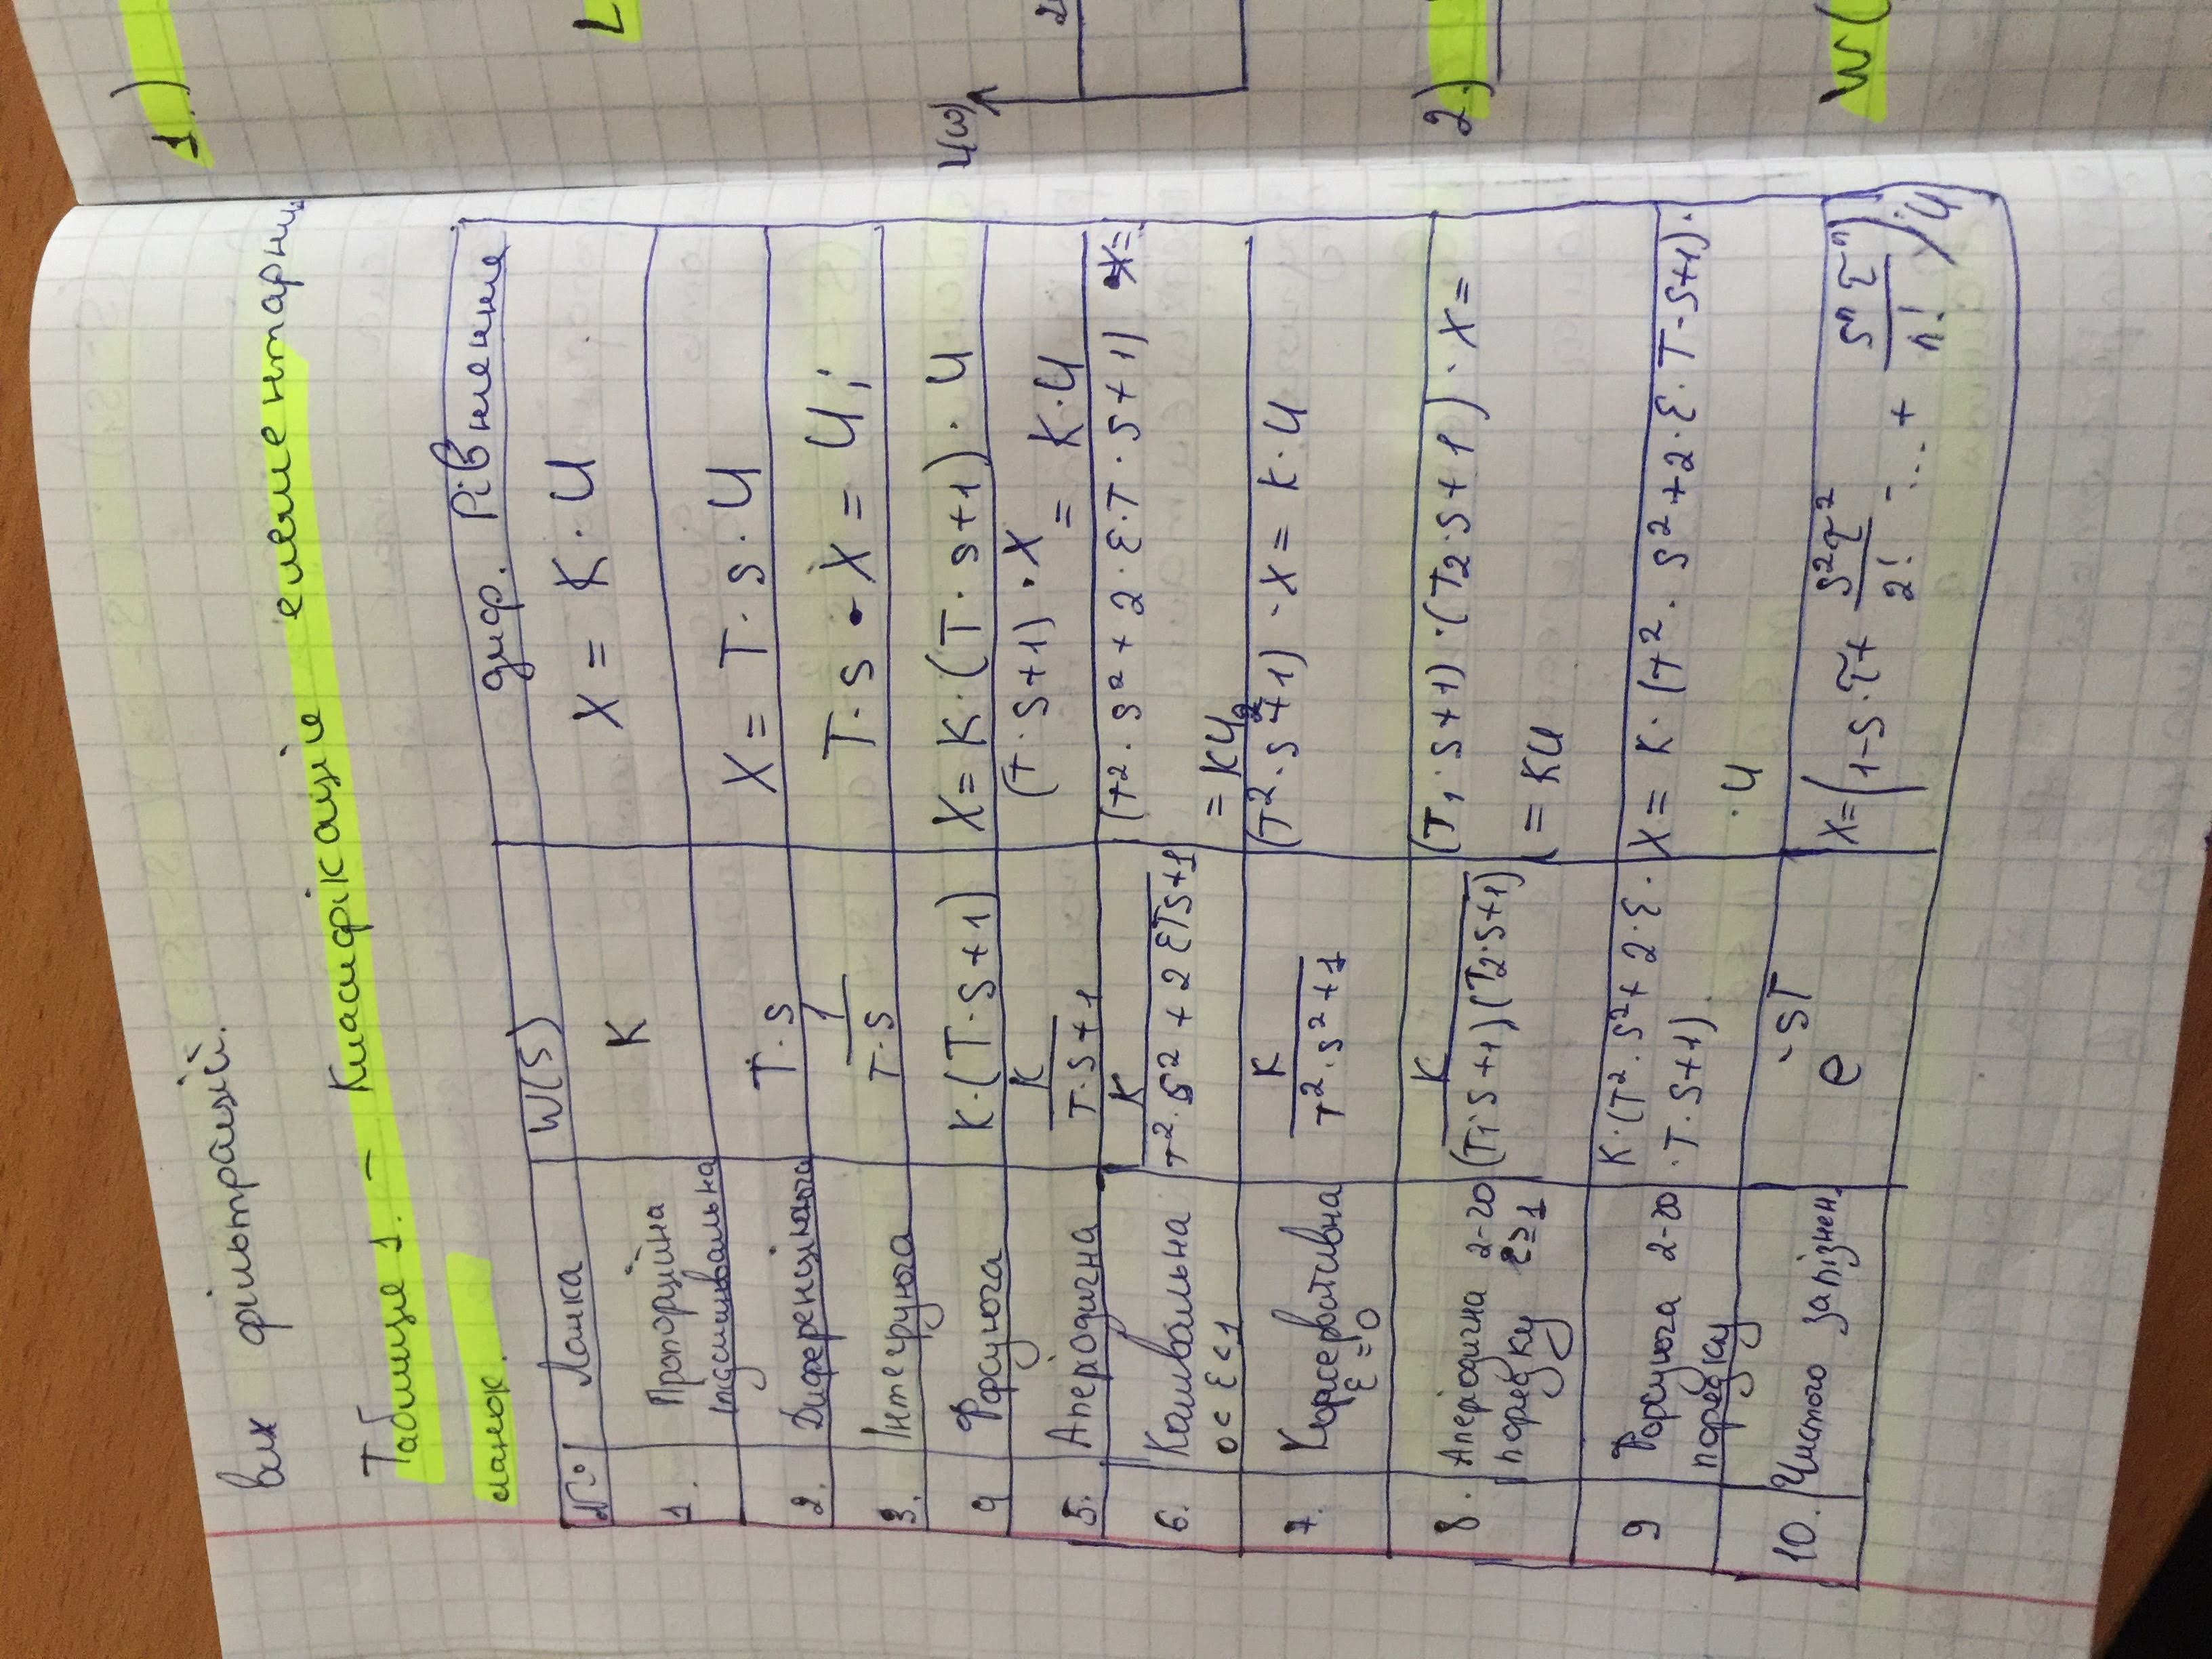 вих фільтрацій.
Таблиця 1. – Класифікація елементарних
ланок.
№ Ланка W(S) диф. Рівняння
1. Пропорційна K X = K · U
(підсилювальна
2. Диференціююча T · s X = T · s · U
3. Інтегруюча 1/(T · S) T · s · X = U;
4 Форсуюча K·(T·S+1) X = K·(T·s+1)·U
5. Аперіодична K/(T·S+1) (T·S+1)·X = K·U
6. Коливальна K/(T²·S²+2ƐTS+1) (T²·S²+2·Ɛ·T·S+1)·X=
0<Ɛ<1 = KU
7. Консервативна K/(T²·S²+1) (T²·S²+1)·X = K·U
Ɛ=0
8. Аперіодична 2-го K/((T₁·S+1)(T₂·S+1)) (T₁·S+1)·(T₂·S+1)·X=
порядку Ɛ≥1 = KU
9 Форсуюча 2-го K·(T²·S²+2·Ɛ· X = K·(T²·S²+2·Ɛ·T·S+1)·
порядку ·T·S+1). ·U
10. Чистого запізнен. e^-sT X=(1-S·τ+ S²τ²/2! -...+ Sⁿτⁿ/n!)·U
1.)
L
L(ω)
2
2.)
W(